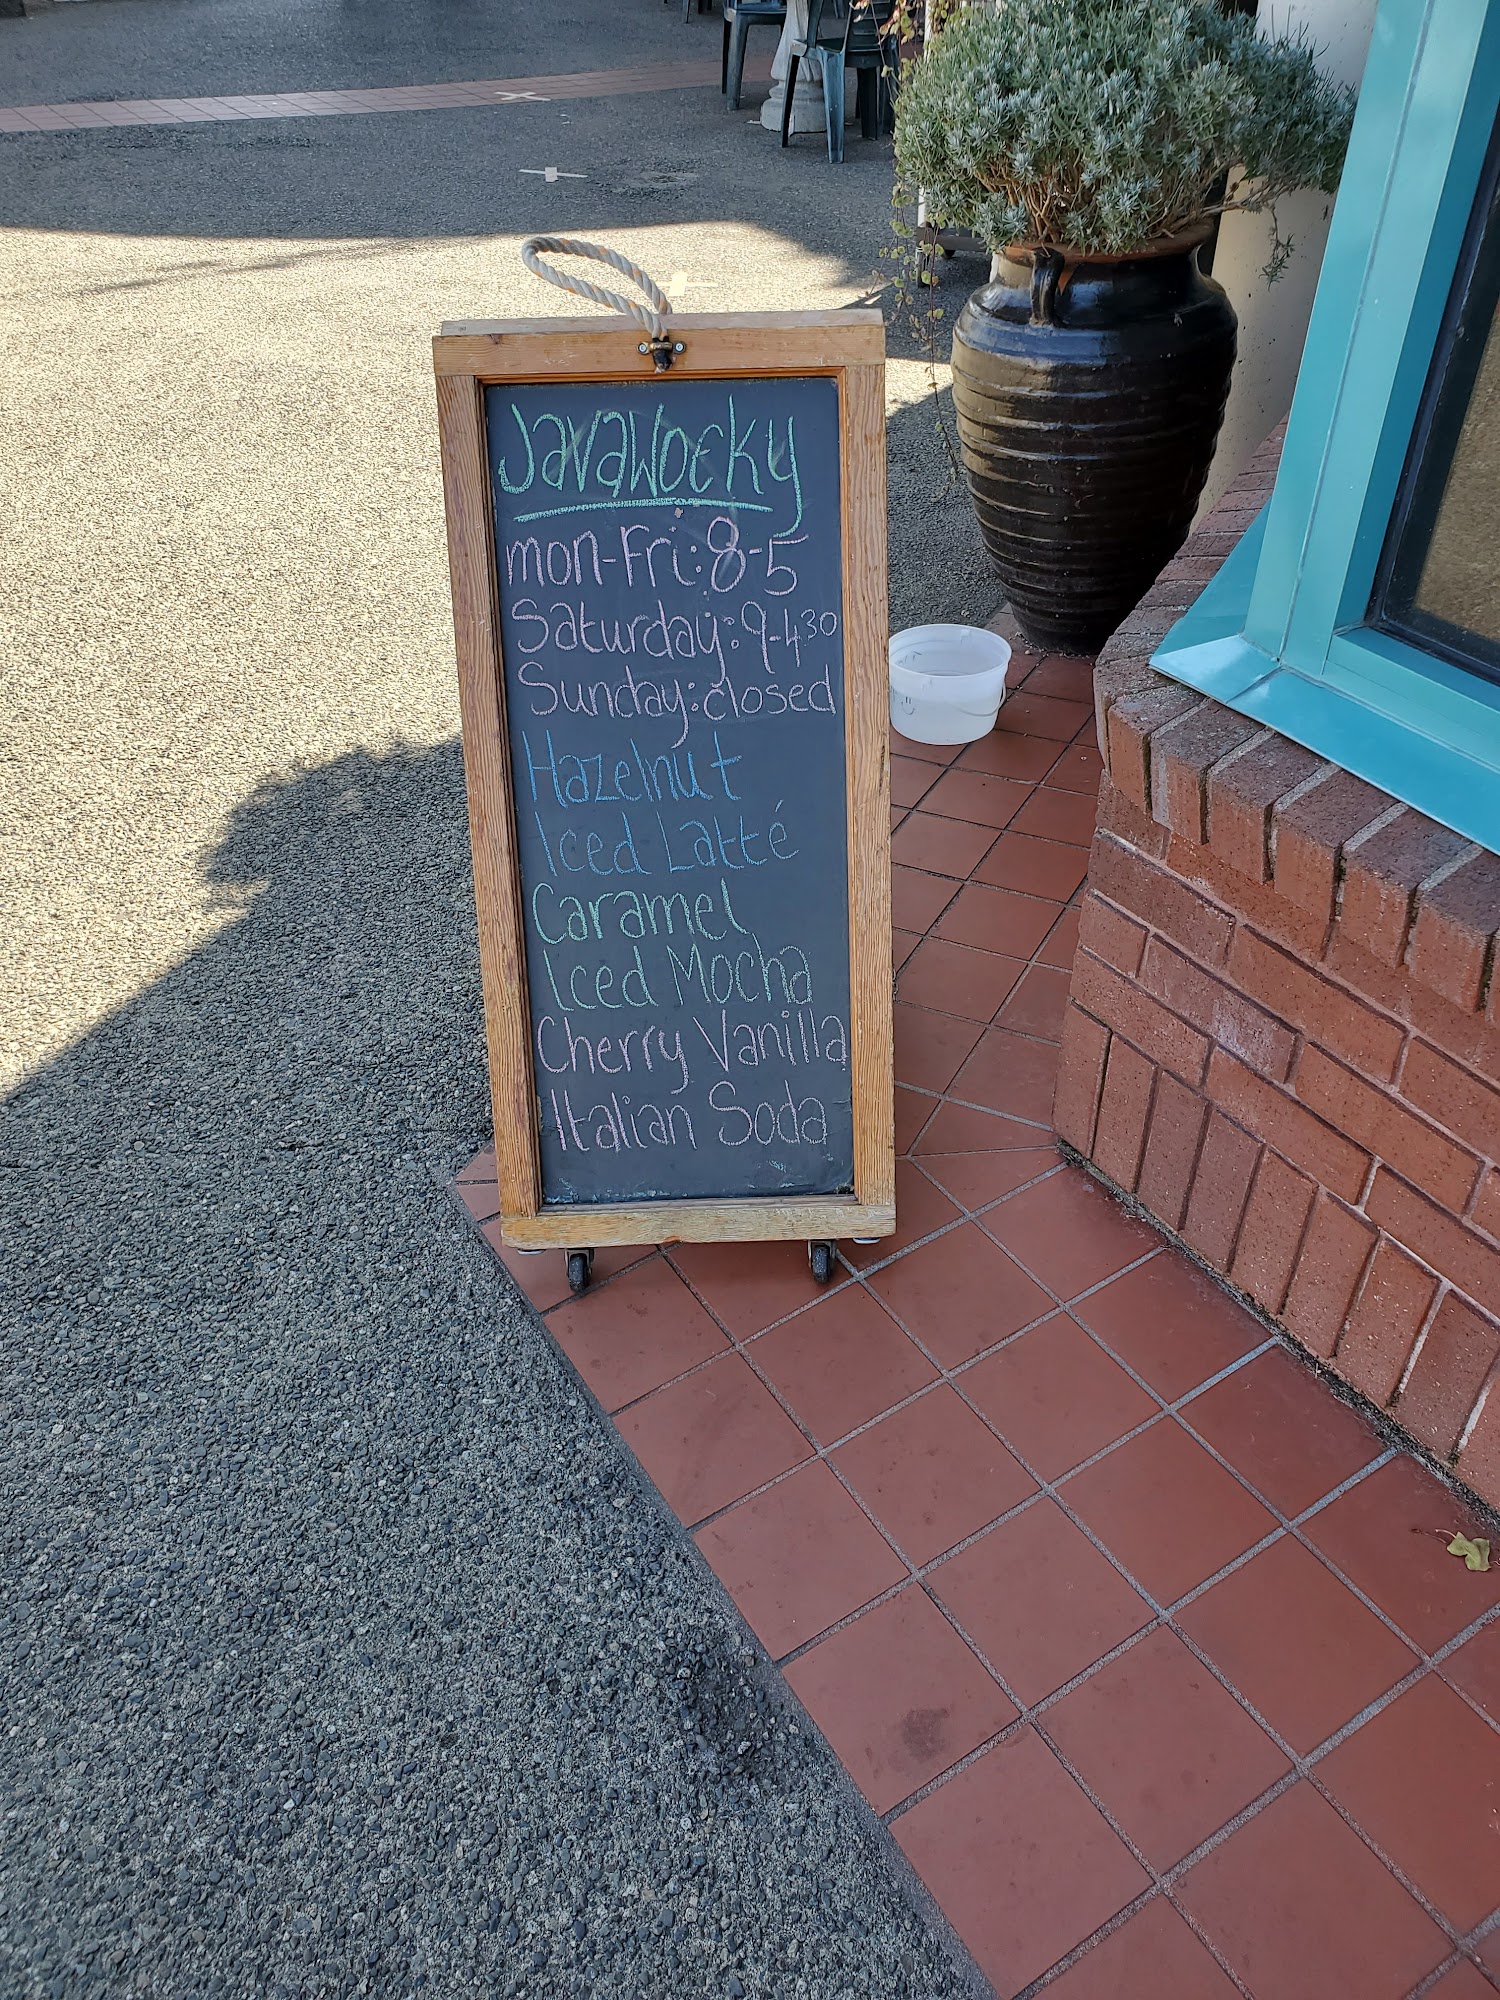 Javawocky
mon-Fri: 8-5
Saturday: 9-4:30
Sunday: closed
Hazelnut
Iced Latté
Caramel
Iced Mocha
Cherry Vanilla
Italian Soda